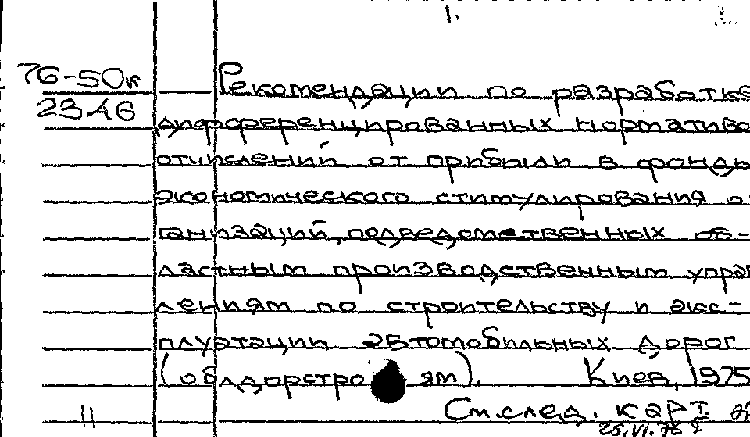 1.
76-50к Рекомендации по разработке
23.46 дифференцированных нормативо
отчислений от прибыли в фонды
экономического стимулирования о
ганизаций, подведомственных об-
ластным производственным управ
лениям по строительству и экс-
плуатации автомобильных дорог
(облдорстро ям). Киев, 1975
11 См. след. карт.